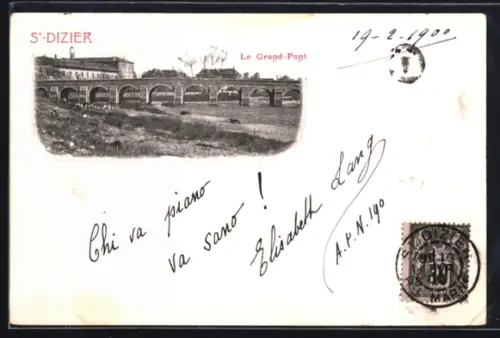 St-DIZIER
Le Grand-Pont
19-2-1900
1
Chi va piano
va sano !
Elisabeth Lang
A.P.N. 190
St DIZIER
10
HTE MARNE